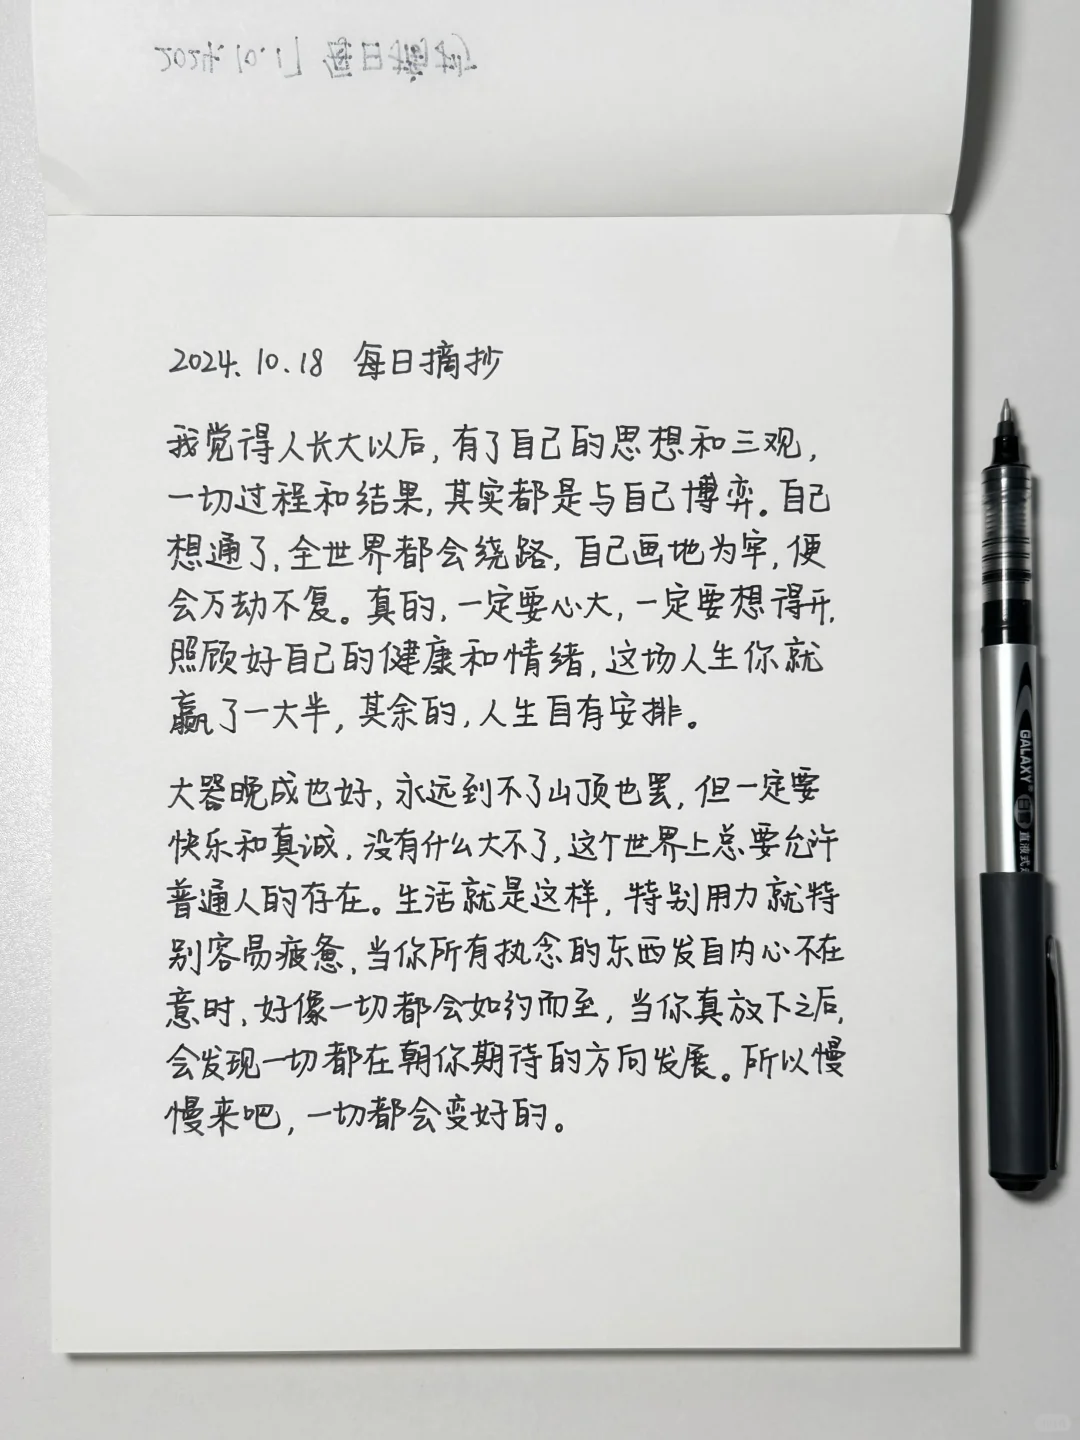 2024.10.17 每日摘抄
2024.10.18 每日摘抄
我觉得人长大以后,有了自己的思想和三观,
一切过程和结果,其实都是与自己博弈。自己
想通了,全世界都会绕路,自己画地为牢,便
会万劫不复。真的,一定要心大,一定要想得开,
照顾好自己的健康和情绪,这场人生你就
赢了一大半,其余的,人生自有安排。
大器晚成也好,永远到不了山顶也罢,但一定要
快乐和真诚,没有什么大不了,这个世界上总要允许
普通人的存在。生活就是这样,特别用力就特
别容易疲惫,当你所有执念的东西发自内心不在
意时,好像一切都会如约而至,当你真放下之后,
会发现一切都在朝你期待的方向发展。所以慢
慢来吧,一切都会变好的。
GALAXY
直液式